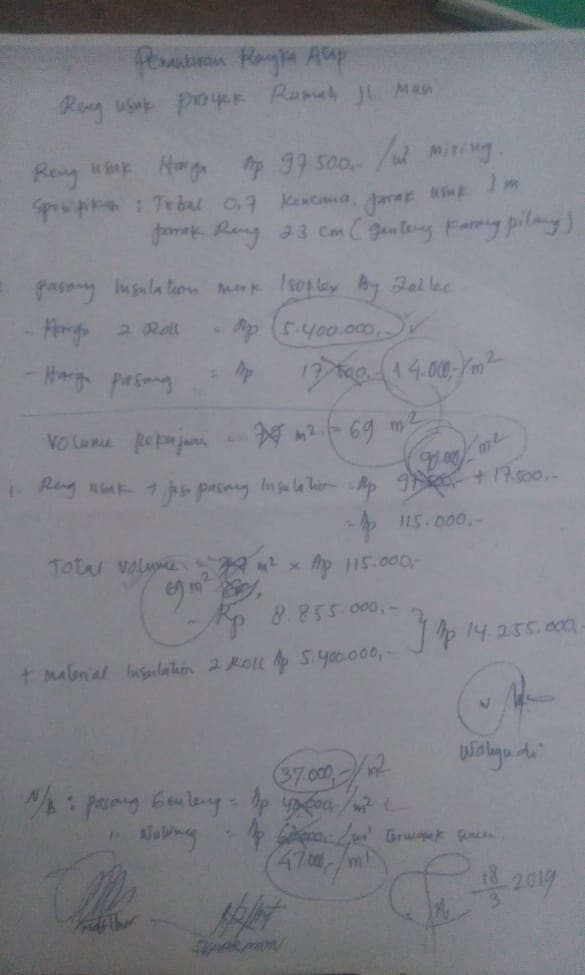 Penawaran Rangka Atap
Reng usuk proyek Rumah jl Musi
Reng usuk Harga Rp 97.500,- /m² Miring.
Spesifikasi : Tebal 0,7 Kencana, jarak usuk 1 m
jarak Reng 23 cm (genteng Karang pilang)
pasang Insulation merk Isoflex By
- Harga 2 Roll = Rp 5.400.000,-
- Harga pasang = Rp 17.500,- 14.000,-/m²
Volume pekerjaan = 77 m² = 69 m²
90.000,-/m²
1. Reng usuk + jasa pasang Insulation = Rp 97.500,- + 17.500,-
= Rp 115.000,-
Total Volume = 77 m² x Rp 115.000,-
69 m²
= Rp 8.855.000,- } Rp 14.255.000,-
+ Material Insulation 2 Roll Rp 5.400.000,-
Wahyudi
37.000,-/m²
N/B : pasang Genteng = Rp /m²
" Nok = Rp /m' termasuk semen
47.000,-/m'
18/3 2019